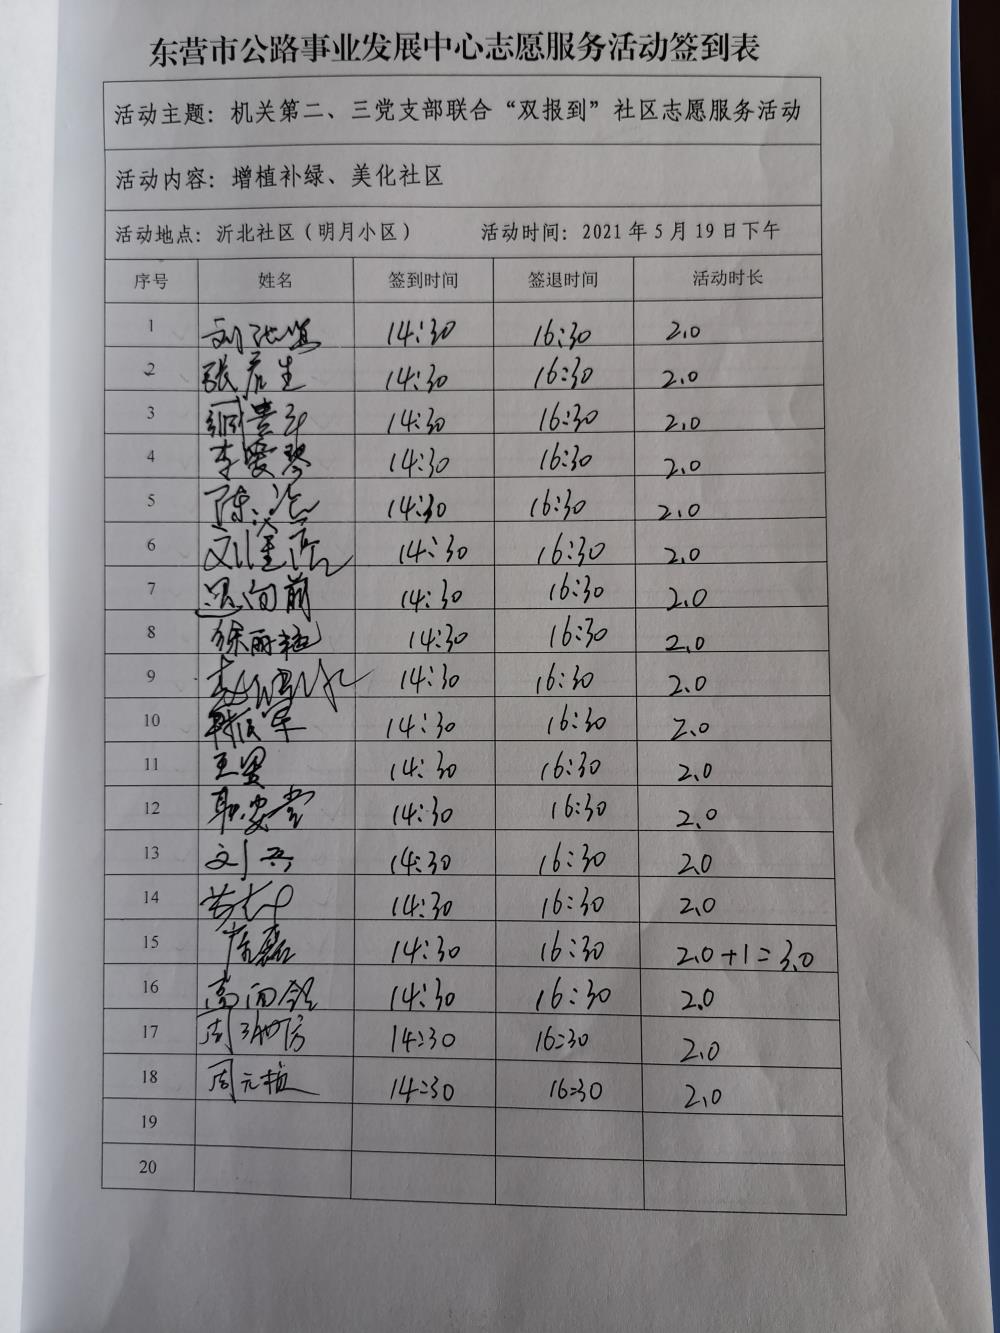 东营市公路事业发展中心志愿服务活动签到表
活动主题：机关第二、三党支部联合“双报到”社区志愿服务活动
活动内容：增植补绿、美化社区
活动地点：沂北社区（明月小区） 活动时间：2021年5月19日下午
序号 姓名 签到时间 签退时间 活动时长
1 14:30 16:30 2.0
2 张君生 14:30 16:30 2.0
3 14:30 16:30 2.0
4 李爱琴 14:30 16:30 2.0
5 陈 14:30 16:30 2.0
6 刘 14:30 16:30 2.0
7 向前 14:30 16:30 2.0
8 徐丽 14:30 16:30 2.0
9 14:30 16:30 2.0
10 14:30 16:30 2.0
11 王 14:30 16:30 2.0
12 耿安堂 14:30 16:30 2.0
13 刘兵 14:30 16:30 2.0
14 14:30 16:30 2.0
15 14:30 16:30 2.0+1=3.0
16 高向 14:30 16:30 2.0
17 周 14:30 16:30 2.0
18 周元植 14:30 16:30 2.0
19
20